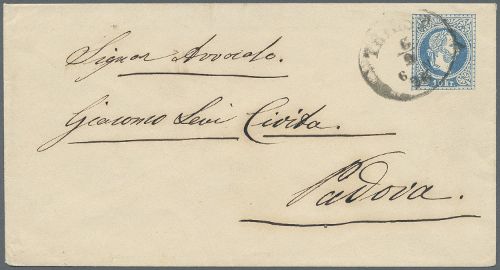 Signor Avvocato
Giacomo Levi Civita.
Padova.